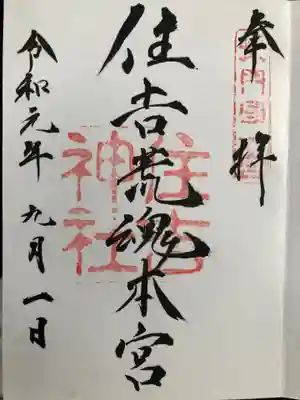 奉拝
長門國一宮
住吉荒魂本宮
住吉神社
令和元年九月一日